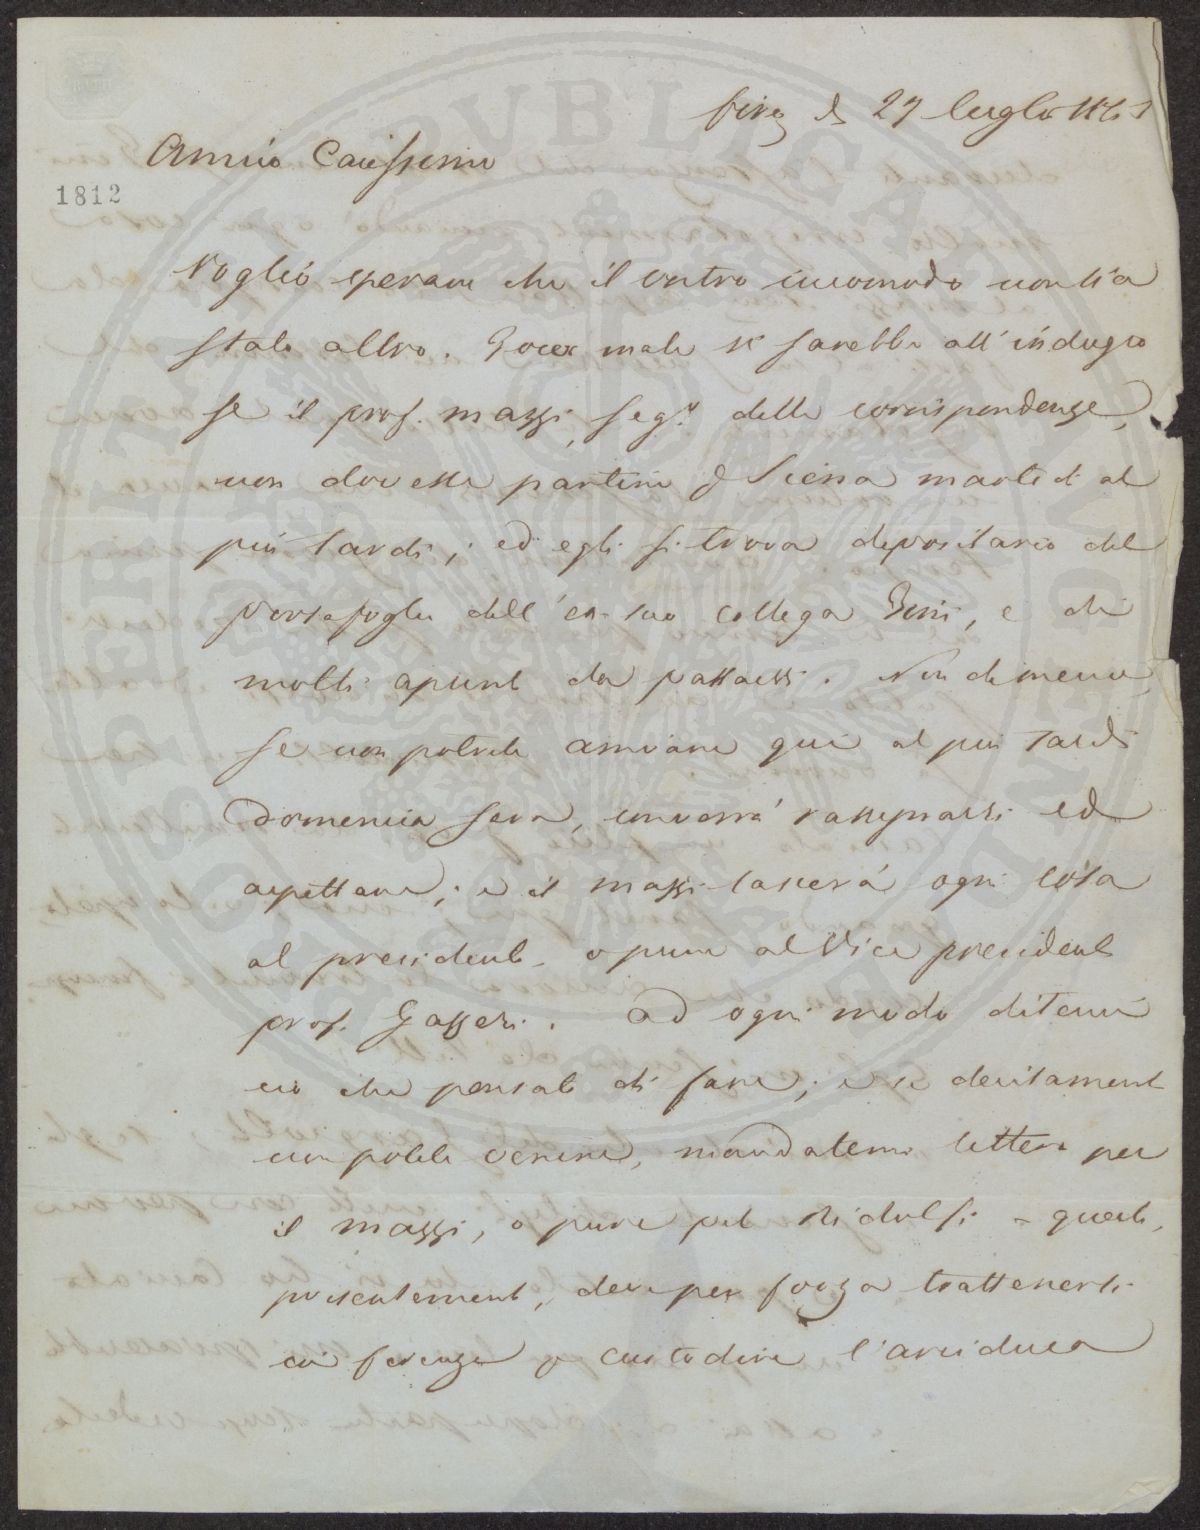 Firz. d 27 luglio
Amico Carissimo
1812
Voglio sperare che il vostro incomodo non sia
stato altro. Poco male vi sarebbe all'indugio
se il prof. Mazzi, Seg.º delle corrispondenze,
non dovesse partire p Siena martedì al
più tardi; ed egli si trova depositario del
portafoglio dell'ex-suo collega Beni, e di
molti apunti da passarvi. Nondimeno,
se non potrete arrivare qui al più tardi
Domenica sera, converrà rassegnarsi ed
aspettare; e il Mazzi lascerà ogni cosa
al presidente o pure al Vice presidente
prof. Gazzeri. Ad ogni modo ditemi
ciò che pensate di fare; e se decisamente
non potete venire, mandatemi lettera per
il Mazzi, o pure pel Ridolfi - questi,
presentemente, deve per forza trattenersi
in Firenze a custodire l'arciduca